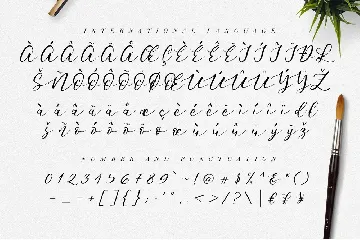 INTERNATIONAL LANGUAGE
À Á Â Ã Ä Å Æ Ç È É Ê Ë Ì Í Î Ï Ð Ł
Š Ñ Ò Ó Ô Õ Ö Ø Œ Ù Ú Û Ü Ý Ÿ Ž
à á â ã ä å æ ç è é ê ë ì í î ï ð ł
š ñ ò ó ô õ ö ø œ ù ú û ü ý ÿ ž
NUMBER AND PUNCTUATION
0 1 2 3 4 5 6 7 8 9 ` ~ ! @ # $ % ^ & * ( )